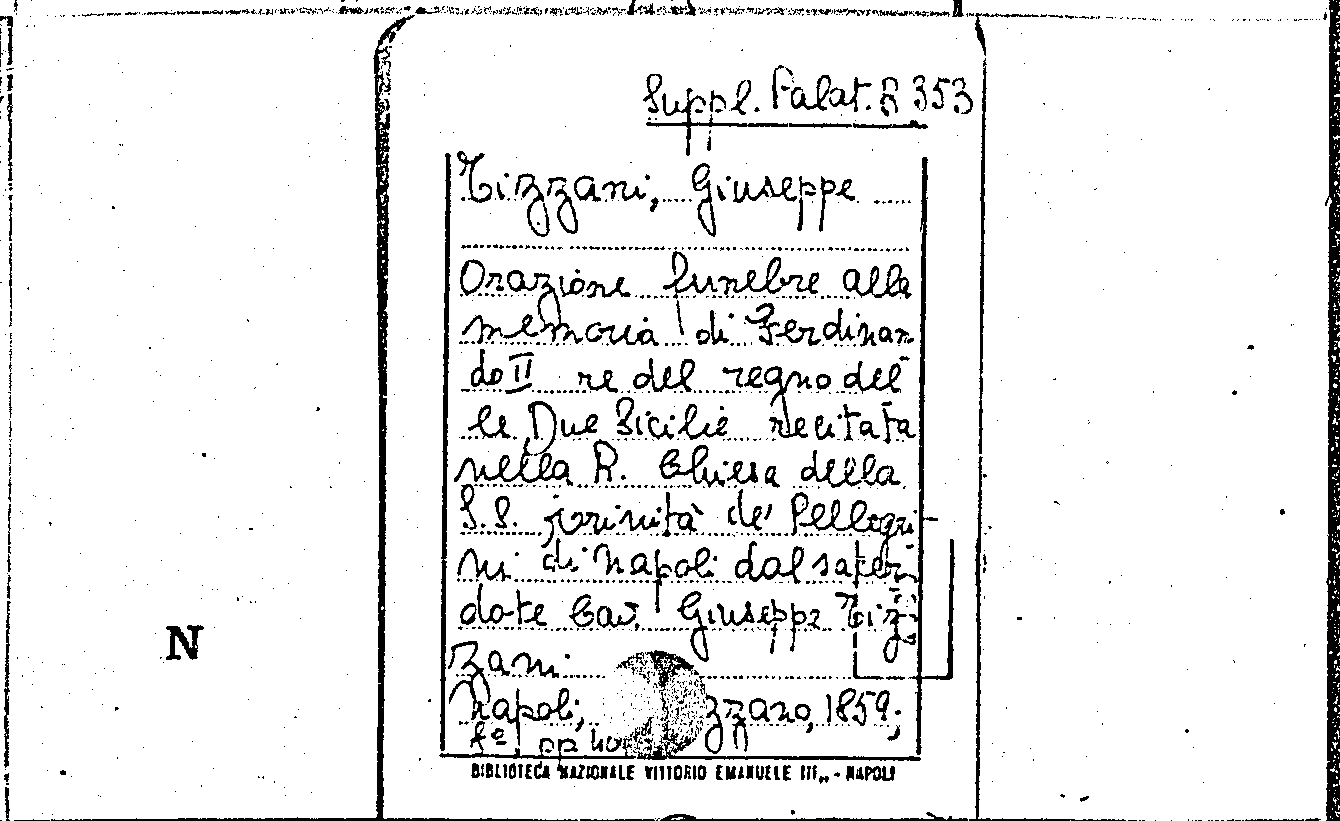 Suppl. Palat. B 353
Tizzani, Giuseppe
Orazione funebre alla
memoria di Ferdinan
do II re del regno del
le Due Sicilie recitata
nella R. Chiesa della
S.S. Trinità de' Pellegri
ni di Napoli dal sacer
dote Cav. Giuseppe Tiz
zani
N
Napoli, zzano, 1859;
4º, pp 40
BIBLIOTECA NAZIONALE VITTORIO EMANUELE III,, - NAPOLI